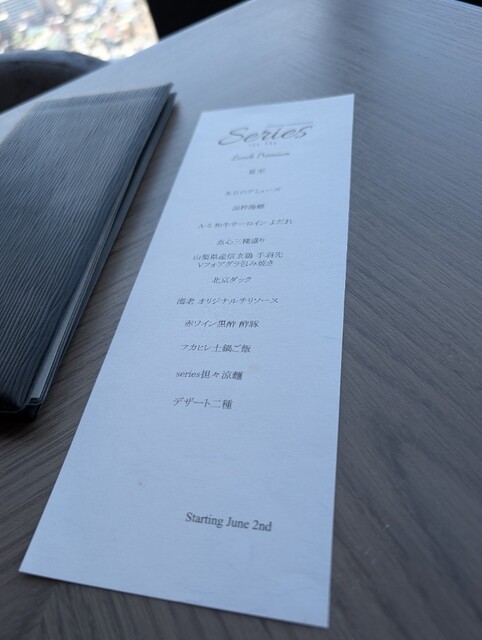 Series
Lunch Premium
夏至
本日のアミューズ
涼拌海蜇
A-5 和牛サーロイン よだれ
点心三種盛り
山梨県産信玄鶏 手羽先
Vフォアグラ包み焼き
北京ダック
海老 オリジナルチリソース
赤ワイン黒酢 酢豚
フカヒレ土鍋ご飯
series担々涼麺
デザート二種
Starting June 2nd